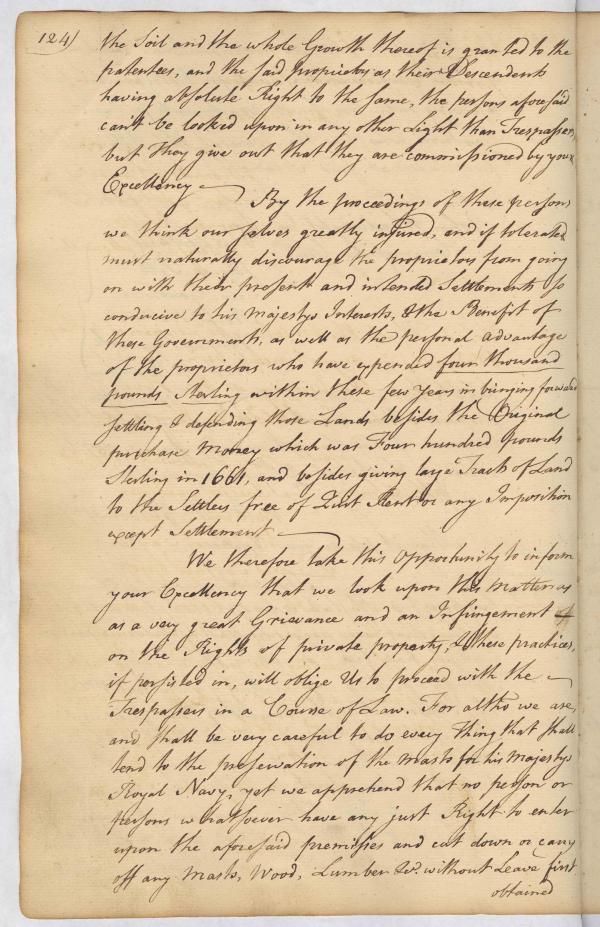 124/
the Soil and the whole Growth thereof is granted to the
patentees, and the said proprietors as their Descendents
having absolute Right to the same, the persons aforesaid
can't be looked upon in any other Light than Trespassers,
but They give out that they are commissioned by your
Excellency
By the proceedings of these persons
we think our selves greatly injured, and if tolerated
must naturally discourage the proprietors from going
on with their present and intended Settlements so
conducive to his Majestys Interests, & the Benefit of
these Governments, as well as the personal advantage
of the proprietors who have expended four thousand
pounds Sterling within these few Years in bringing forward
settling & defending those Lands besides the Original
purchase Money which was Four hundred pounds
Sterling in 1661, and besides giving large Tracts of Land
to the Settlers free of Quit Rent or any Imposition
except Settlement
We therefore take this Opportunity to inform
your Excellency that we look upon this Matter as
as a very great Grievance and an Infringement
on the Rights of private property, & these practices,
if persisted in, will oblige Us to proceed with the
Trespassers in a Course of Law. For altho we are
and shall be very careful to do every Thing that shall
tend to the preservation of the Masts for his Majestys
Royal Navy, yet we apprehend that no person or
persons whatsoever have any just Right to enter
upon the aforesaid premisses and cut down or carry
off any Masts, Wood, Lumber &c. without Leave first
obtained